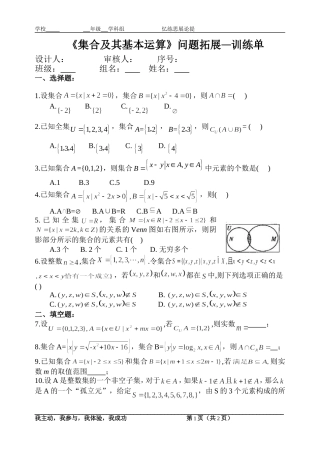 学校____ __年级__学科组 忆练思展论提
《集合及其基本运算》问题拓展—训练单
设计人： 审核人： 序号：
班级：____ 组名：____ 姓名：____
一、选择题：
1.设集合A={x|x+2=0}，集合B={x|x²-4=0}，则A∩B=( )
A.{-2} B.{2} C.{-2,2} D.∅
2.已知全集U={1,2,3,4}，集合A={1,2}，B={2,3}，则∁U(A∪B)=( )
A.{1,3,4} B.{3,4} C.{3} D.{4}
3.已知集合A={0,1,2},则集合B={x-y|x∈A,y∈A}中元素的个数是( )
A.1 B.3 C.5 D.9
4.已知集合A={x|x²-2x>0}，B={x|-√5<x<√5}，则( )
A.A∩B=∅ B.A∪B=R C.B⊆A D.A⊆B
5.已知全集U=R，集合M={x|-2≤x-1≤2}和
N={x|x=2k-1,k∈Z}的关系的 Venn 图如右图所示，则阴
影部分所示的集合的元素共有( )
U N M
A.3个 B.2个 C.1个 D.无穷多个
6.设整数n≥4,集合X={1,2,3,…,n},令集合S={(x,y,z)|x,y,z∈X,
且三条件x<y<z,y<z<x,z<x<y恰有一个成立}，若(x,y,z)和(z,w,x)都在S中,则下列选项正确的是
( )
A.(y,z,w)∈S,(x,y,w)∉S B.(y,z,w)∈S,(x,y,w)∈S
C.(y,z,w)∉S,(x,y,w)∈S D.(y,z,w)∉S,(x,y,w)∉S
二、填空题：
7.设U={0,1,2,3},A={x∈U|x²+mx=0},若∁UA={1,2},则实数m=____；
8.集合A={x|y=√(-x²+10x-16)}，集合B={y|y=log₂x,x∈A}，则____；
9.已知集合A={x|-2≤x≤5}和集合B={x|m+1≤x≤2m-1},若满足B⊆A,则实
数m的取值范围____；
10.设A是整数集的一个非空子集,对于k∈A,如果k-1∉A且k+1∉A，那么k
是A的一个“孤立元”，给定S={1,2,3,4,5,6,7,8,}，由S的3个元素构成
我主动，我参与，我体验，我成功 第 1 页（共 2 页）